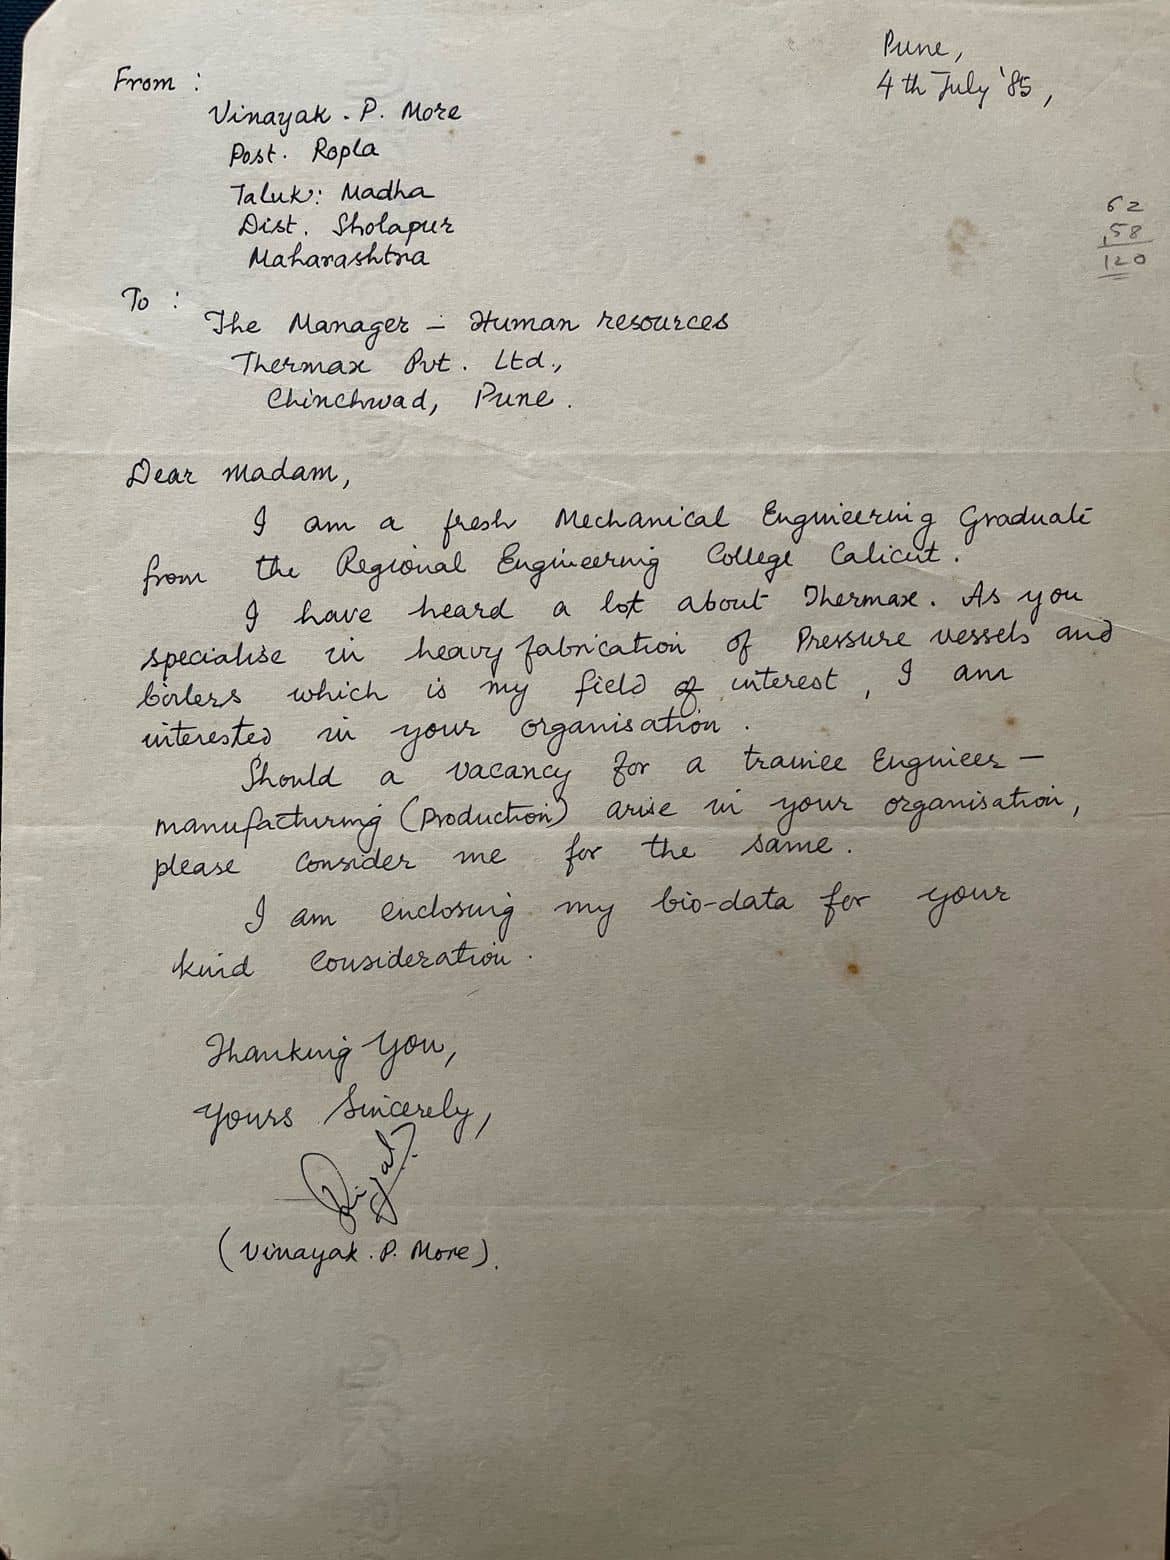 Pune,
4th July '85,
From :
Vinayak . P. More
Post. Ropla
Taluk: Madha
Dist. Sholapur
Maharashtra
62
58
120
To :
The Manager – Human resources
Thermax Pvt. Ltd.,
Chinchwad, Pune.
Dear Madam,
I am a fresh Mechanical Engineering Graduate
from the Regional Engineering College Calicut.
I have heard a lot about Thermax. As you
specialise in heavy fabrication of Pressure vessels and
boilers which is my field of interest, I am
interested in your organisation.
Should a vacancy for a trainee Engineer –
manufacturing (Production) arise in your organisation,
please consider me for the same.
I am enclosing my bio-data for your
kind consideration.
Thanking you,
Yours Sincerely,
(Vinayak . P. More).